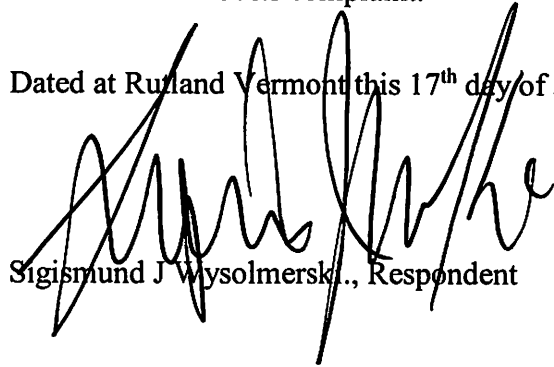 Dated at Rutland Vermont this 17th day of
Sigismund J Wysolmerski., Respondent